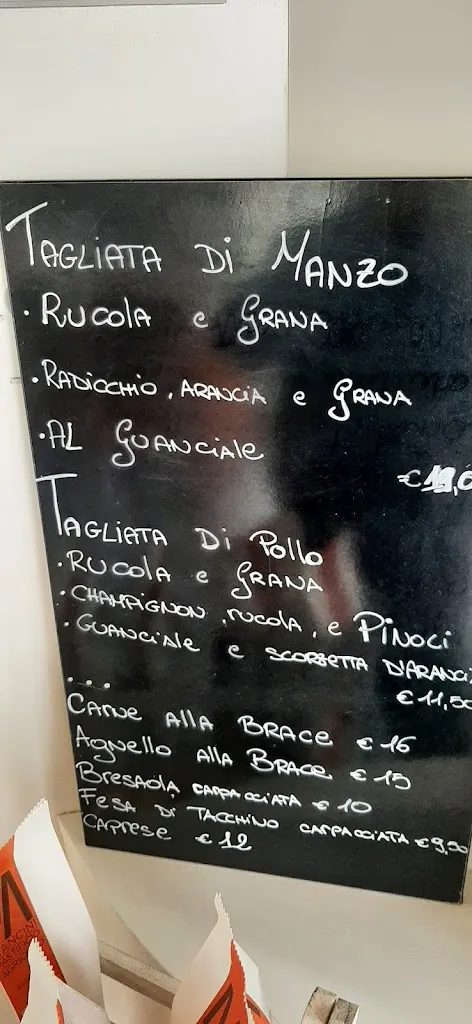 TAGLIATA DI MANZO
• RUCOLA e GRANA
• RADICCHIO, ARANCIA e GRANA
• AL GUANCIALE
TAGLIATA DI POLLO
• RUCOLA e GRANA
• CHAMPIGNON, RUCOLA, e PINOLI
• GUANCIALE e SCORZETTA D'ARANCI
€ 11,50
...
CARNE ALLA BRACE € 16
AGNELLO ALLA BRACE € 15
BRESAOLA CARPACCIATA € 10
FESA DI TACCHINO CARPACCIATA € 9,50
CAPRESE € 12